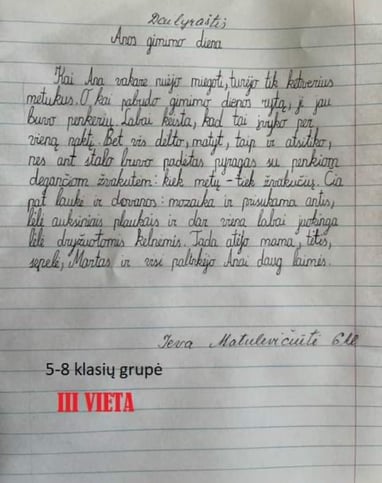 Dailyraštis
Anos gimimo diena
Kai Ana vakare nuėjo miegoti, turėjo tik ketverius
metukus. O kai pabudo gimimo dienos rytą, ji jau
buvo penkerių. Labai keista, kad tai įvyko per
vieną naktį. Bet vis dėlto, matyt, taip ir atsitiko,
nes ant stalo buvo padėtas pyragas su penkiom
degančiom žvakutėm: kiek metų - tiek žvakučių. Čia
pat laukė ir dovanos: mozaika ir prisukama antis,
lėlė auksiniais plaukais ir dar viena labai juokinga
lėlė dryžuotomis kelnėmis. Tada atėjo mama, tėtis,
senelė, Martas ir visi palinkėjo Anai daug laimės.
Ieva Matulevičiūtė 6kl
5-8 klasių grupė
III VIETA